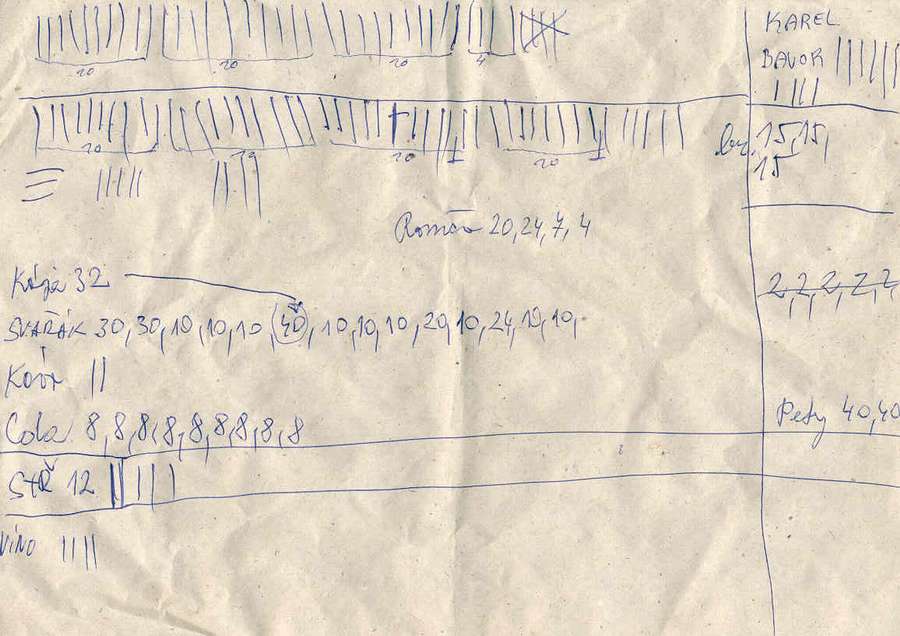 10 10 10 4
KAREL
BAVOR
10 10 10 10
br. 15, 15,
15
20, 24, 7, 4
Kája 32
2, 2, 2, 2, 2,
SVAŘÁK 30, 30, 10, 10, 10, 40, 10, 10, 10, 20, 10, 24, 10, 10,
Pety 40, 40
Cola 8, 8, 8, 8, 8, 8, 8, 8, 8
STŘ 12
VÍNO